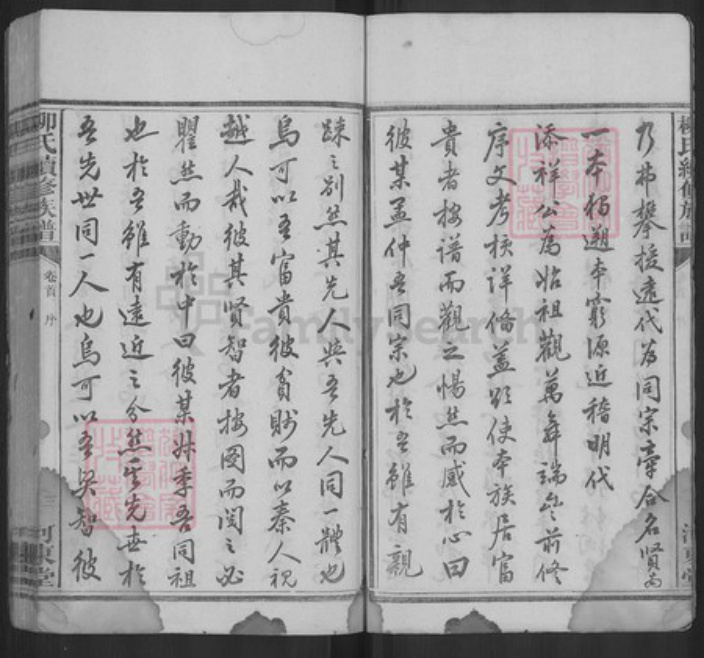 乃弗攀援遠代為同宗牽合名賢為
一本獨遡本窮源近稽明代
添祥公為始祖觀萬舜端 前修
序文考核詳俻蓋欲使本族居富
貴者按谱而觀之惕然而感於心曰
彼某孟仲吾同宗也於吾雖有親
踈之别然其先人與吾先人同一體也
烏可以吾富貴彼貧賎而以秦人視
越人哉彼其賢智者按图而閲之必
瞿然而動於中曰彼某妹季吾同祖
也於吾雖有遠近之分然其先世於
吾先世同一人也烏可以吾賢智彼
柳氏續修族譜
卷首 序
三
河東堂
FamilySearch